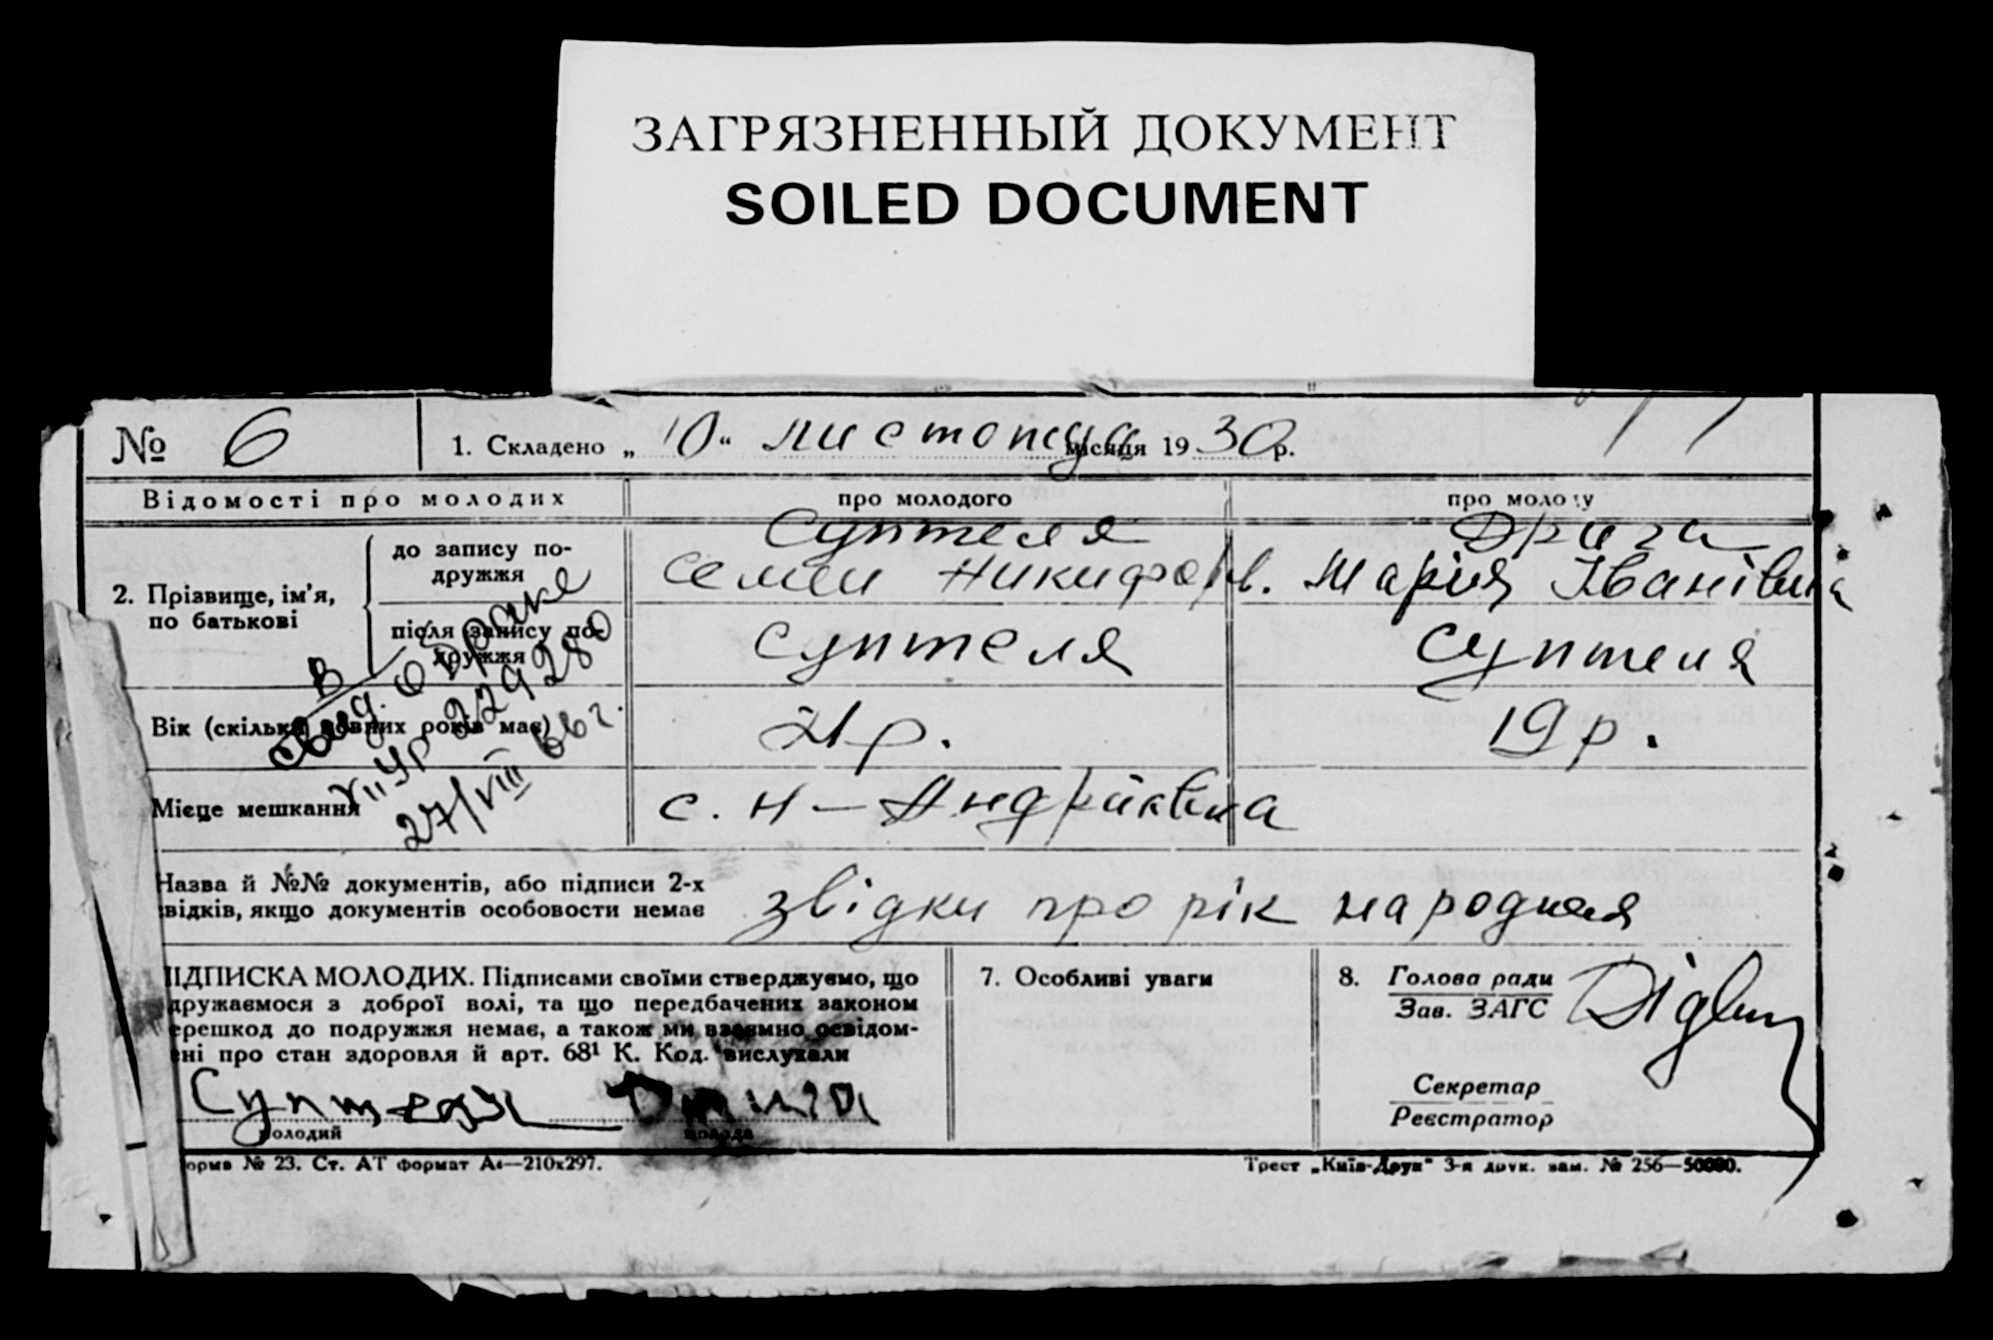 ЗАГРЯЗНЕННЫЙ ДОКУМЕНТ
SOILED DOCUMENT
№ 6
1. Складено „10“ листопада місяця 1930 р.
Відомості про молодих
про молодого
про молоду
2. Прізвище, ім’я, по батькові
до запису по-
дружжя
Суптеля
Семен Никифорів.
Драга
Марія Іванівна
після запису по-
дружжя
Суптеля
Суптеля
Вік (скільки повних років має)
21 р.
19 р.
Місце мешкання
с. Н-Андріївка
В
свид. о браке
II УР 229280
27/VIII 66 г.
Назва й №№ документів, або підписи 2-х
свідків, якщо документів особовости немає
звідки про рік народженя
ПІДПИСКА МОЛОДИХ. Підписами своїми стверджуємо, що
дружаємося з доброї волі, та що передбачених законом
перешкод до подружжя немає, а також ми взаємно освідом-
лені про стан здоровля й арт. 68¹ К. Код. вислухали
Суптеля
молодий
молода
7. Особливі уваги
8. Голова ради
Зав. ЗАГС
Секретар
Реєстратор
Форма № 23. Ст. АТ формат А4—210х297.
Трест „Київ-Друк“ 3-я друк. зам. № 256—50000.